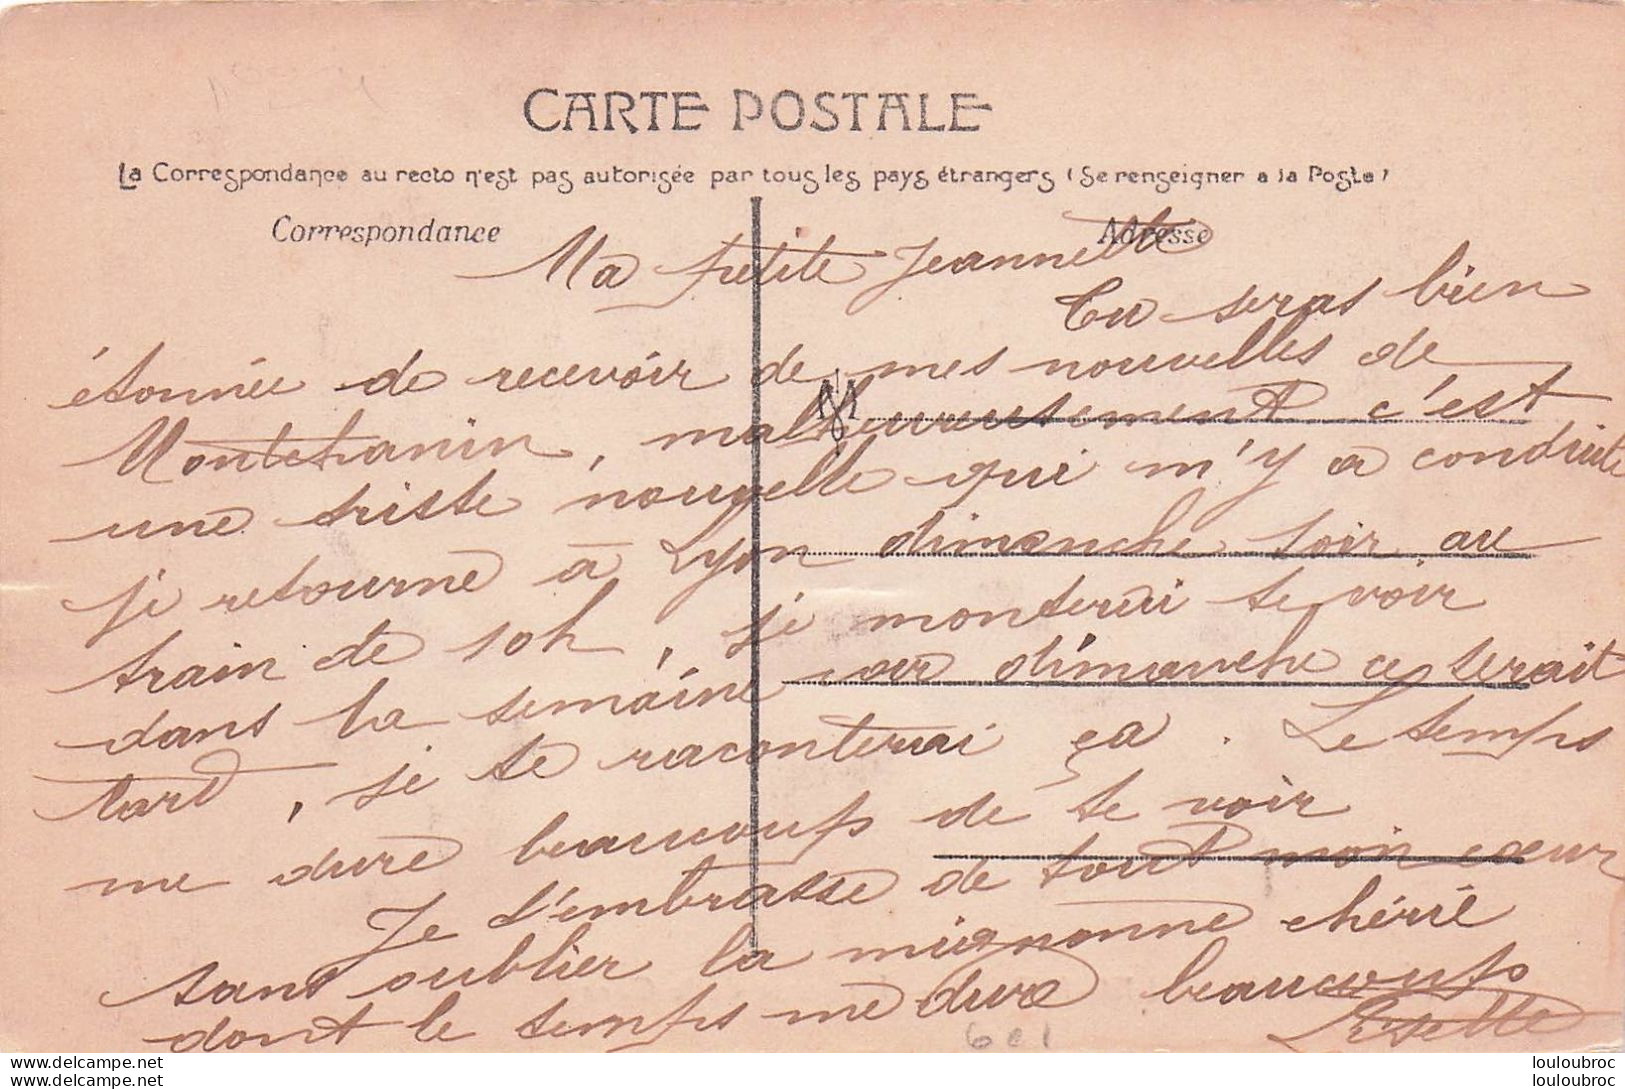 CARTE POSTALE
La Correspondance au recto n'est pas autorisée par tous les pays étrangers (Se renseigner a la Poste)
Correspondance
Adresse
Ma petite Jeannette
Tu seras bien
étonnée de recevoir de mes nouvelles de
Montchanin, malheureusement c'est
M
une triste nouvelle qui m'y a conduite
je retourne à Lyon dimanche soir au
train de 10h, je monterai te voir
dans la semaine car dimanche ce serait
tard, je te raconterai ça. Le temps
me dure beaucoup de te voir
Je t'embrasse de tout mon cœur
sans oublier la mignonne chérie
dont le temps me dure beaucoup
Lisette
601
louloubroc
louloubroc